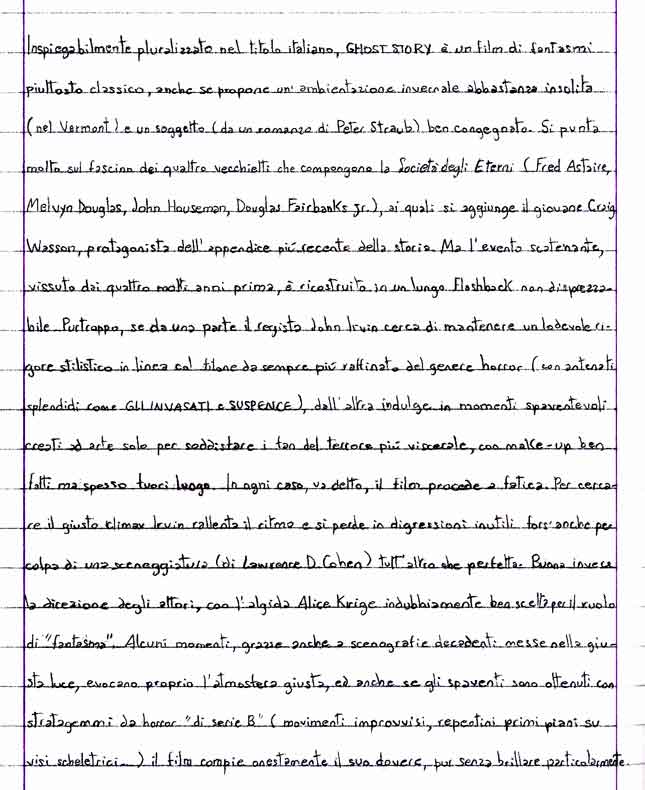 Inspiegabilmente pluralizzato nel titolo italiano, GHOST STORY è un film di fantasmi
piuttosto classico, anche se propone un'ambientazione invernale abbastanza insolita
(nel Vermont) e un soggetto (da un romanzo di Peter Straub) ben congegnato. Si punta
molto sul fascino dei quattro vecchietti che compongono la Società degli Eterni (Fred Astaire,
Melvyn Douglas, John Houseman, Douglas Fairbanks Jr.), ai quali si aggiunge il giovane Craig
Wasson, protagonista dell'appendice più recente della storia. Ma l'evento scatenante,
vissuto dai quattro molti anni prima, è ricostruito in un lungo flashback non disprezza-
bile. Purtroppo, se da una parte il regista John Irvin cerca di mantenere un lodevole ri-
gore stilistico in linea col filone da sempre più raffinato del genere horror (con antenati
splendidi come GLI INVASATI e SUSPENCE), dall'altra indulge in momenti spaventevoli
creati ad arte solo per soddisfare i fan del terrore più viscerale, con make-up ben
fatti ma spesso fuori luogo. In ogni caso, va detto, il film procede a fatica. Per cerca-
re il giusto klimax Irvin rallenta il ritmo e si perde in digressioni inutili fors'anche per
colpa di una sceneggiatura (di Lawrence D. Cohen) tutt'altro che perfetta. Buona invece
la direzione degli attori, con l'algida Alice Krige indubbiamente ben scelta per il ruolo
di "fantasma". Alcuni momenti, grazie anche a scenografie decadenti messe nella giu-
sta luce, evocano proprio l'atmosfera giusta, ed anche se gli spaventi sono ottenuti con
stratagemmi da horror "di serie B" (movimenti improvvisi, repentini primi piani su
visi scheletrici...) il film compie onestamente il suo dovere, pur senza brillare particolarmente.